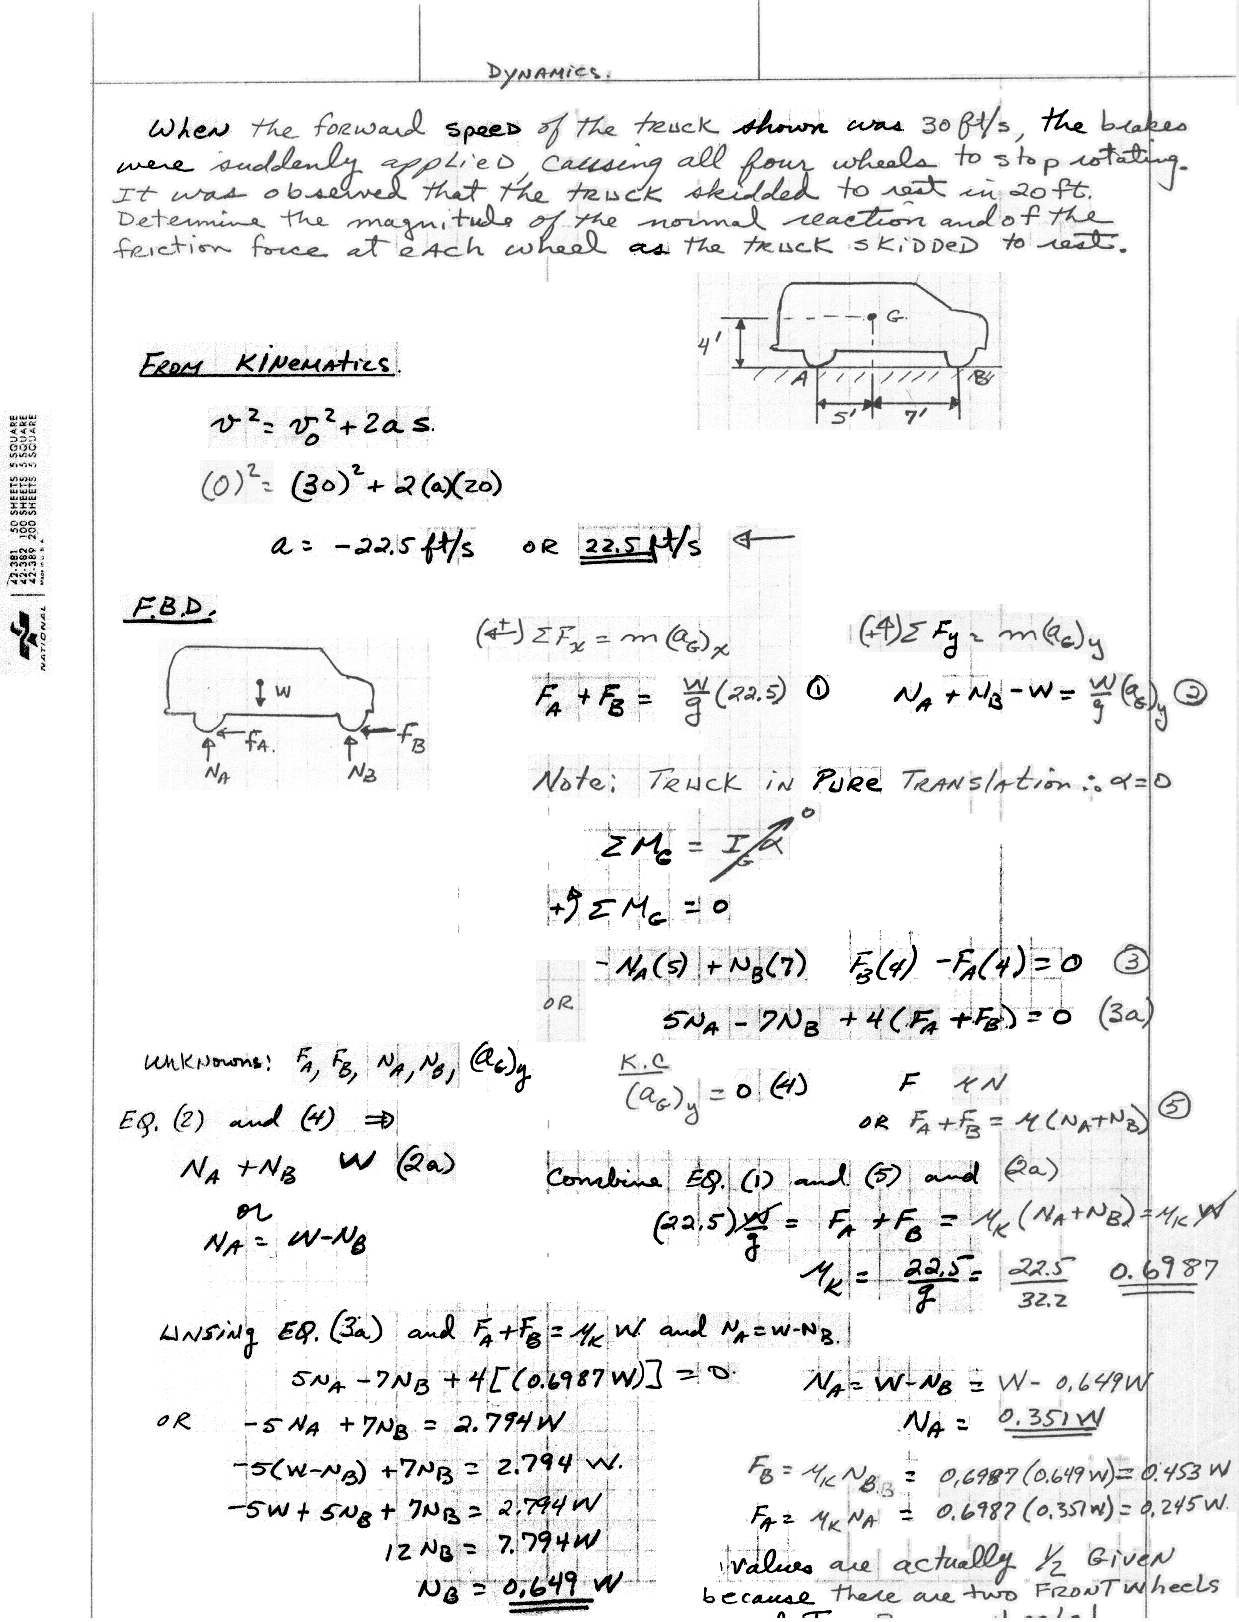 DYNAMICS.
When the forward speed of the truck shown was 30 ft/s, the brakes
were suddenly applied, causing all four wheels to stop rotating.
It was observed that the truck skidded to rest in 20 ft.
Determine the magnitude of the normal reaction and of the
friction force at each wheel as the truck skidded to rest.
G
4'
A
B
5'
7'
From Kinematics.
v² = v₀² + 2as.
(0)² = (30)² + 2(a)(20)
a = -22.5 ft/s OR 22.5 ft/s ←
42-381 50 SHEETS 5 SQUARE
42-382 100 SHEETS 5 SQUARE
42-389 200 SHEETS 5 SQUARE
NATIONAL
F.B.D.
W
fA.
fB
NA
NB
(←+) ΣFx = m(aG)x
(+↑) ΣFy = m(aG)y
FA + FB = W/g (22.5) ①
NA + NB - W = W/g (aG)y ②
Note: Truck in Pure Translation ∴ α = 0
ΣMG = IGα 0
+↺ ΣMG = 0
-NA(5) + NB(7) FB(4) - FA(4) = 0 ③
OR 5NA - 7NB + 4(FA + FB) = 0 (3a)
Unknowns: FA, FB, NA, NB, (aG)y
K.C
(aG)y = 0 (4)
F μN
OR FA + FB = μ(NA + NB) ⑤
EQ. (2) and (4) ⇒
NA + NB W (2a)
or
NA = W - NB
Combine EQ. (1) and (5) and (2a)
(22.5) W/g = FA + FB = μK (NA + NB) = μK W
μK = 22.5/g = 22.5/32.2 0.6987
Unsing EQ. (3a) and FA + FB = μK W and NA = W - NB.
5NA - 7NB + 4[(0.6987W)] = 0
OR -5NA + 7NB = 2.794W
-5(W - NB) + 7NB = 2.794 W.
-5W + 5NB + 7NB = 2.794W
12NB = 7.794W
NB = 0.649 W
NA = W - NB = W - 0.649W
NA = 0.351W
FB = μK NB = 0.6987(0.649W) = 0.453 W
FA = μK NA = 0.6987(0.351W) = 0.245W.
values are actually ½ Given
because there are two Front wheels